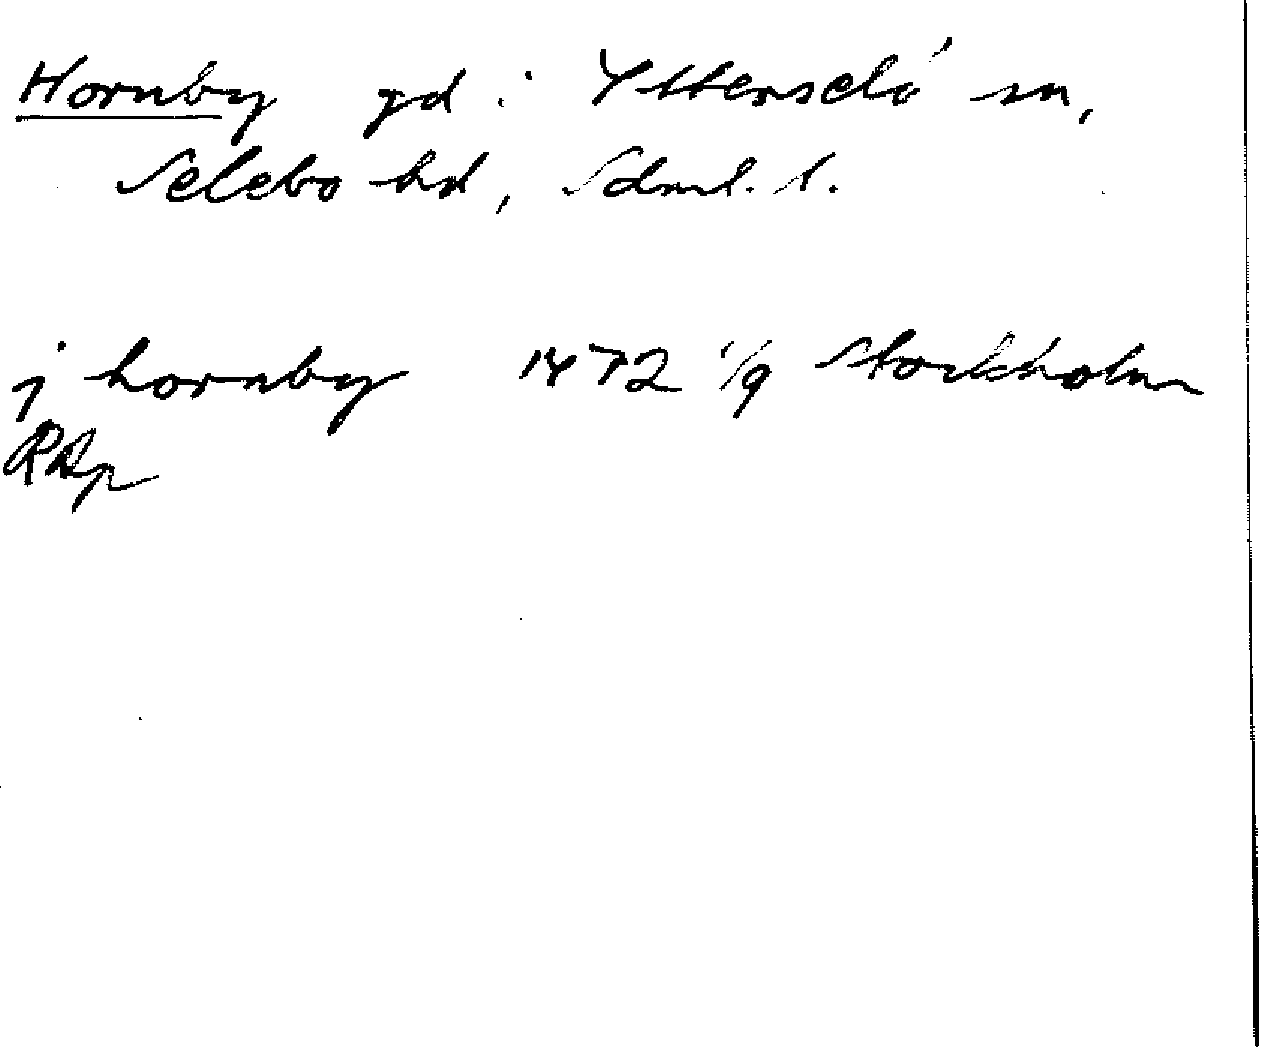 Hornby gd i Ytterselö sn,
Selebo hd, Sdml. l.
j hornby 1472 1/9 Stockholm
RAp